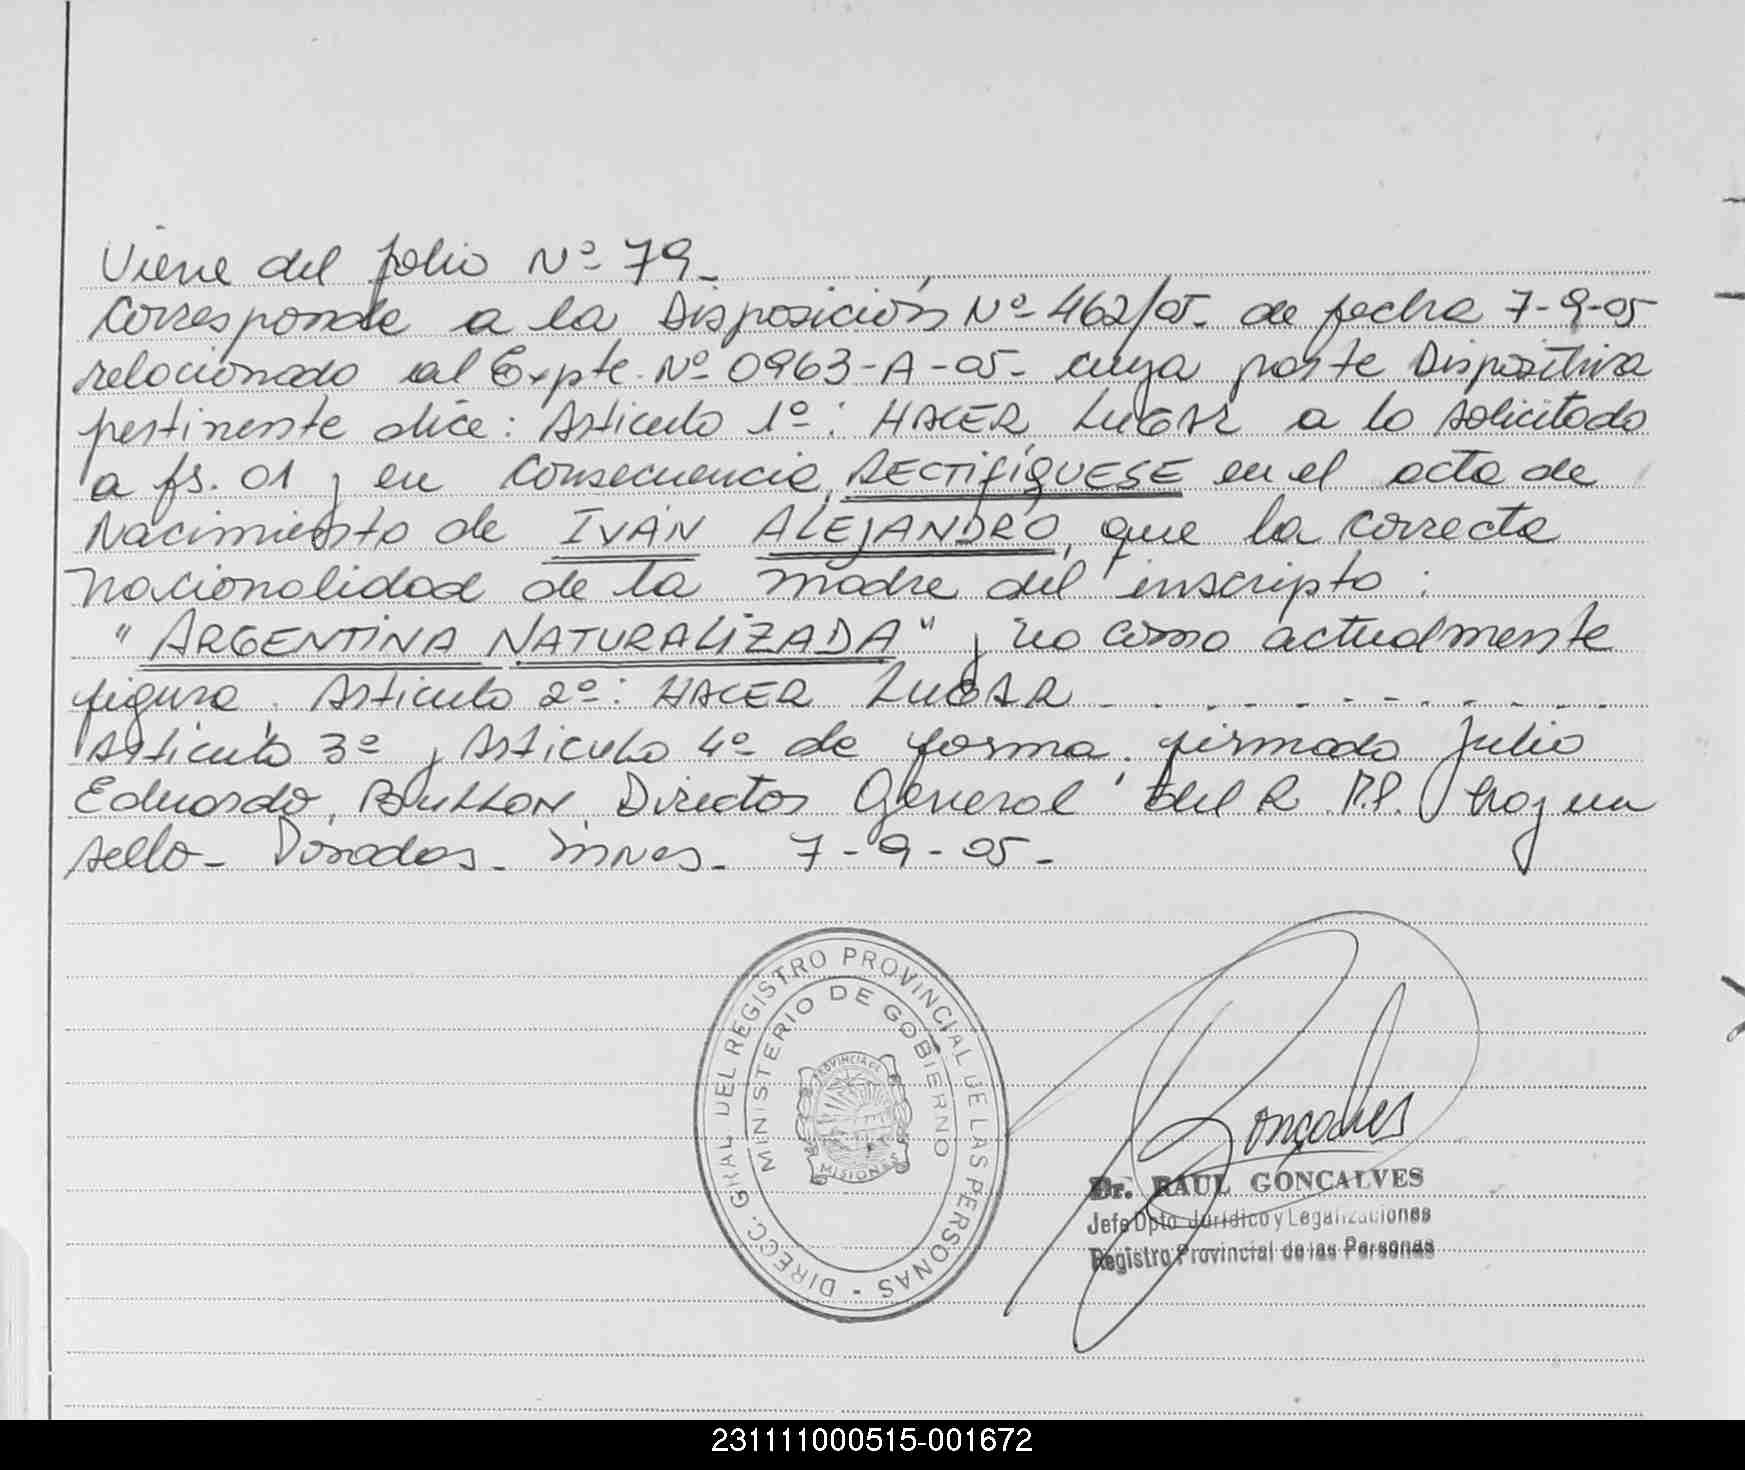 Viene del folio Nº 79_
Corresponde a la Disposición Nº 462/05_ de fecha 7-9-05
relacionado al Expte. Nº 0963-A-05_ cuya parte Dispositiva
pertinente dice: Artículo 1º: HACER LUGAR a lo solicitado
a fs. 01 y en Consecuencia, RECTIFÍQUESE en el acta de
Nacimiento de IVÁN ALEJANDRO, que la correcta
nacionalidad de la madre del inscripto:
"ARGENTINA NATURALIZADA" y no como actualmente
figura. Artículo 2º: HACER LUGAR - - - - - - - - - -
Artículo 3º y Artículo 4º de forma. firmado Julio
Eduardo, Director General del R.P.P. hay un
sello_ Posadas_ Mnes_ 7-9-05_
DIRECC. GRAL DEL REGISTRO PROVINCIAL DE LAS PERSONAS -
MINISTERIO DE GOBIERNO
PROVINCIA DE
MISIONES
Gonçalves
Dr. RAUL GONCALVES
Jefe Dpto Jurídico y Legalizaciones
Registro Provincial de las Personas
231111000515-001672